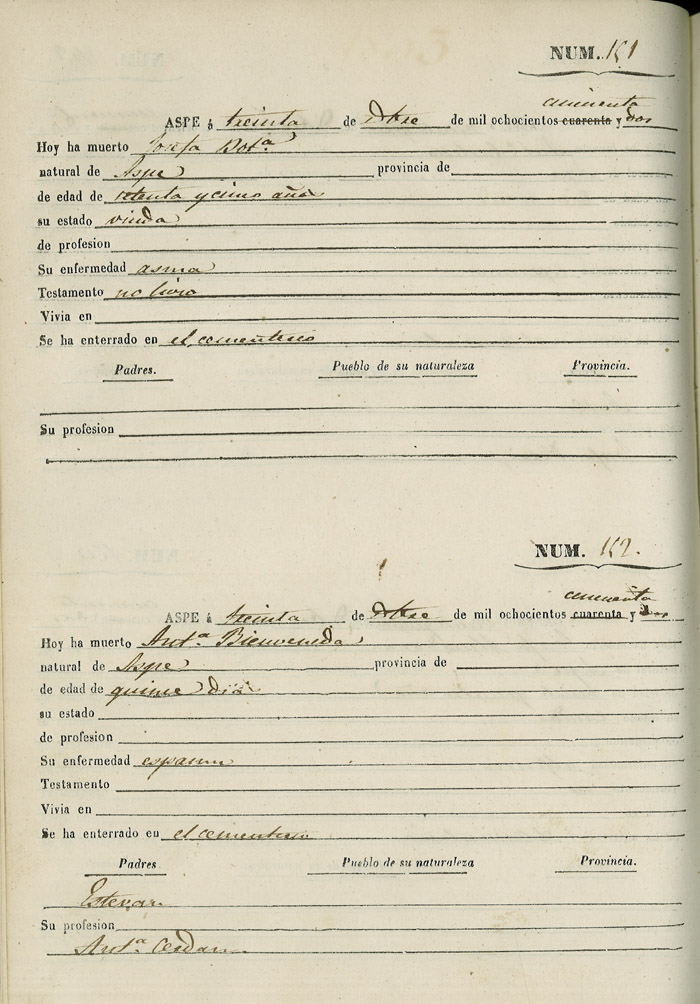 NUM. 151
cincuenta
ASPE á treinta de Dbre de mil ochocientos cuarenta y dos
Hoy ha muerto Josefa Botª
natural de Aspe provincia de
de edad de setenta y cinco años
su estado viuda
de profesion
Su enfermedad asma
Testamento no hizo
Vivia en
Se ha enterrado en el cementerio
Padres. Pueblo de su naturaleza Provincia.
Su profesion
NUM. 152.
cincuenta
ASPE á treinta de Dbre de mil ochocientos cuarenta y dos
Hoy ha muerto Antª Bienvenida
natural de Aspe provincia de
de edad de quince dias
su estado
de profesion
Su enfermedad espasmo
Testamento
Vivia en
Se ha enterrado en el cementerio
Padres Pueblo de su naturaleza Provincia.
Estevan
Su profesion
Antª Cerdan